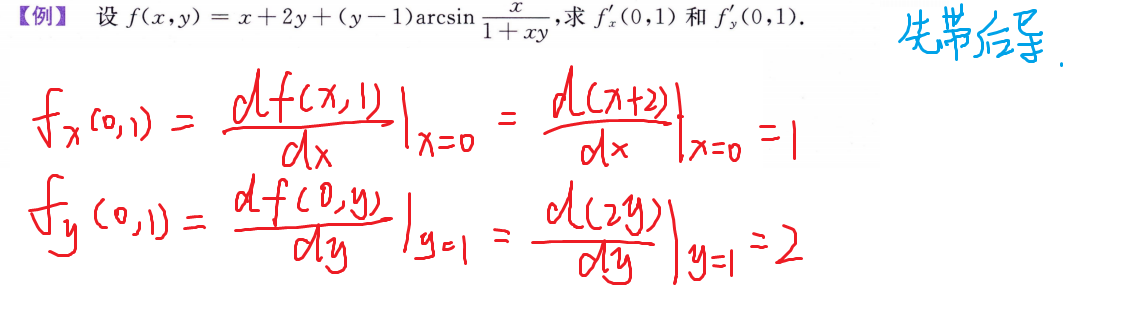 【例】 设 f(x,y) = x+2y+(y−1)arcsin x/(1+xy),求 f′ₓ(0,1) 和 f′ᵧ(0,1).
先带后导.
fₓ(0,1) = df(x,1)/dx |ₓ₌₀ = d(x+2)/dx |ₓ₌₀ = 1
fᵧ(0,1) = df(0,y)/dy |y=1 = d(2y)/dy |y=1 = 2